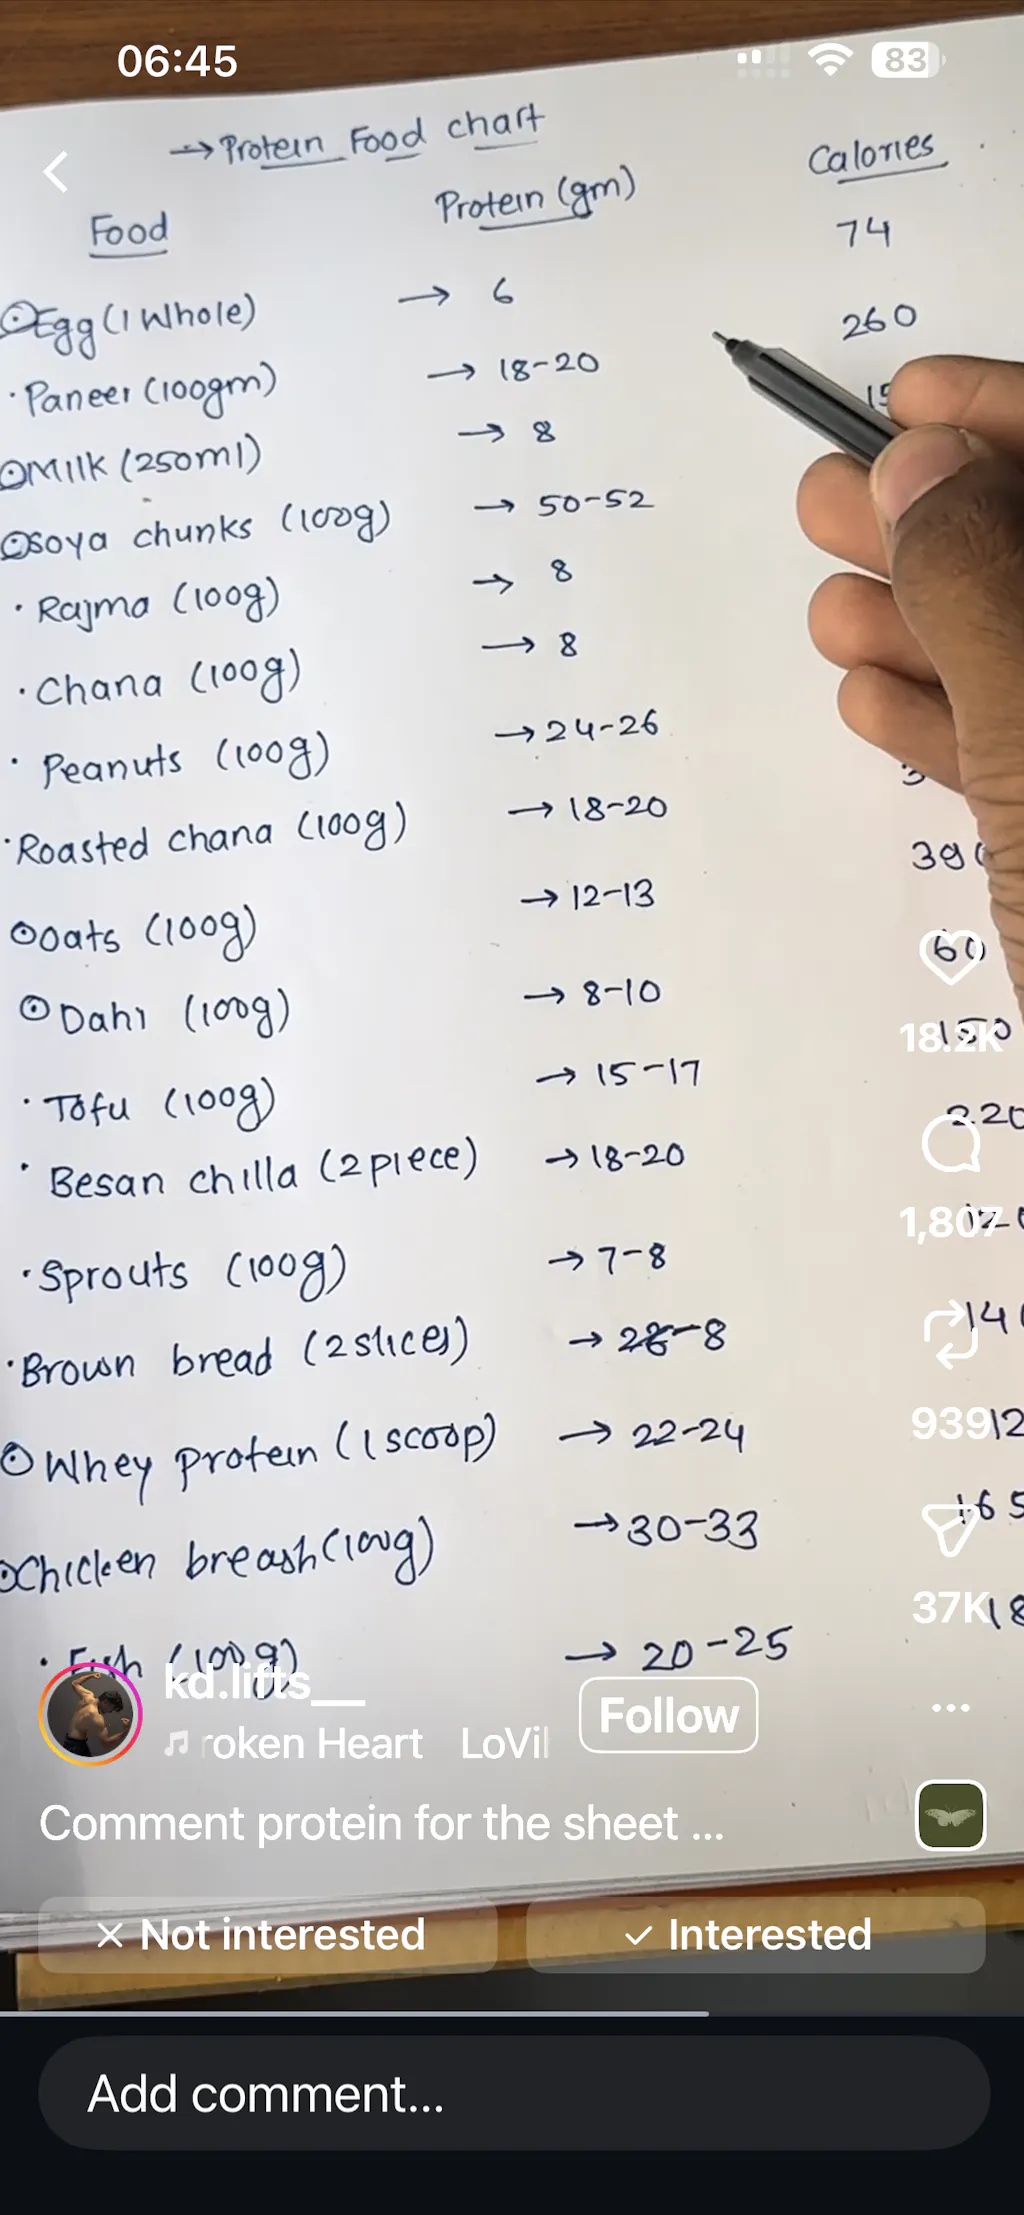 06:45
83
→ Protein Food chart
Food Protein (gm) Calories
Egg (1 Whole) → 6 74
Paneer (100gm) → 18-20 260
Milk (250ml) → 8
Soya chunks (100g) → 50-52
Rajma (100g) → 8
Chana (100g) → 8
Peanuts (100g) → 24-26
Roasted chana (100g) → 18-20
Oats (100g) → 12-13
Dahi (100g) → 8-10 60
Tofu (100g) → 15-17 150
Besan chilla (2 piece) → 18-20 220
Sprouts (100g) → 7-8
Brown bread (2 slices) → 8
Whey protein (1 scoop) → 22-24
Chicken breash (100g) → 30-33 165
Fish (100g) → 20-25
18.2K
1,807
939
37K
kd.lifts__
Follow
roken Heart LoVil
Comment protein for the sheet ...
× Not interested
✓ Interested
Add comment...